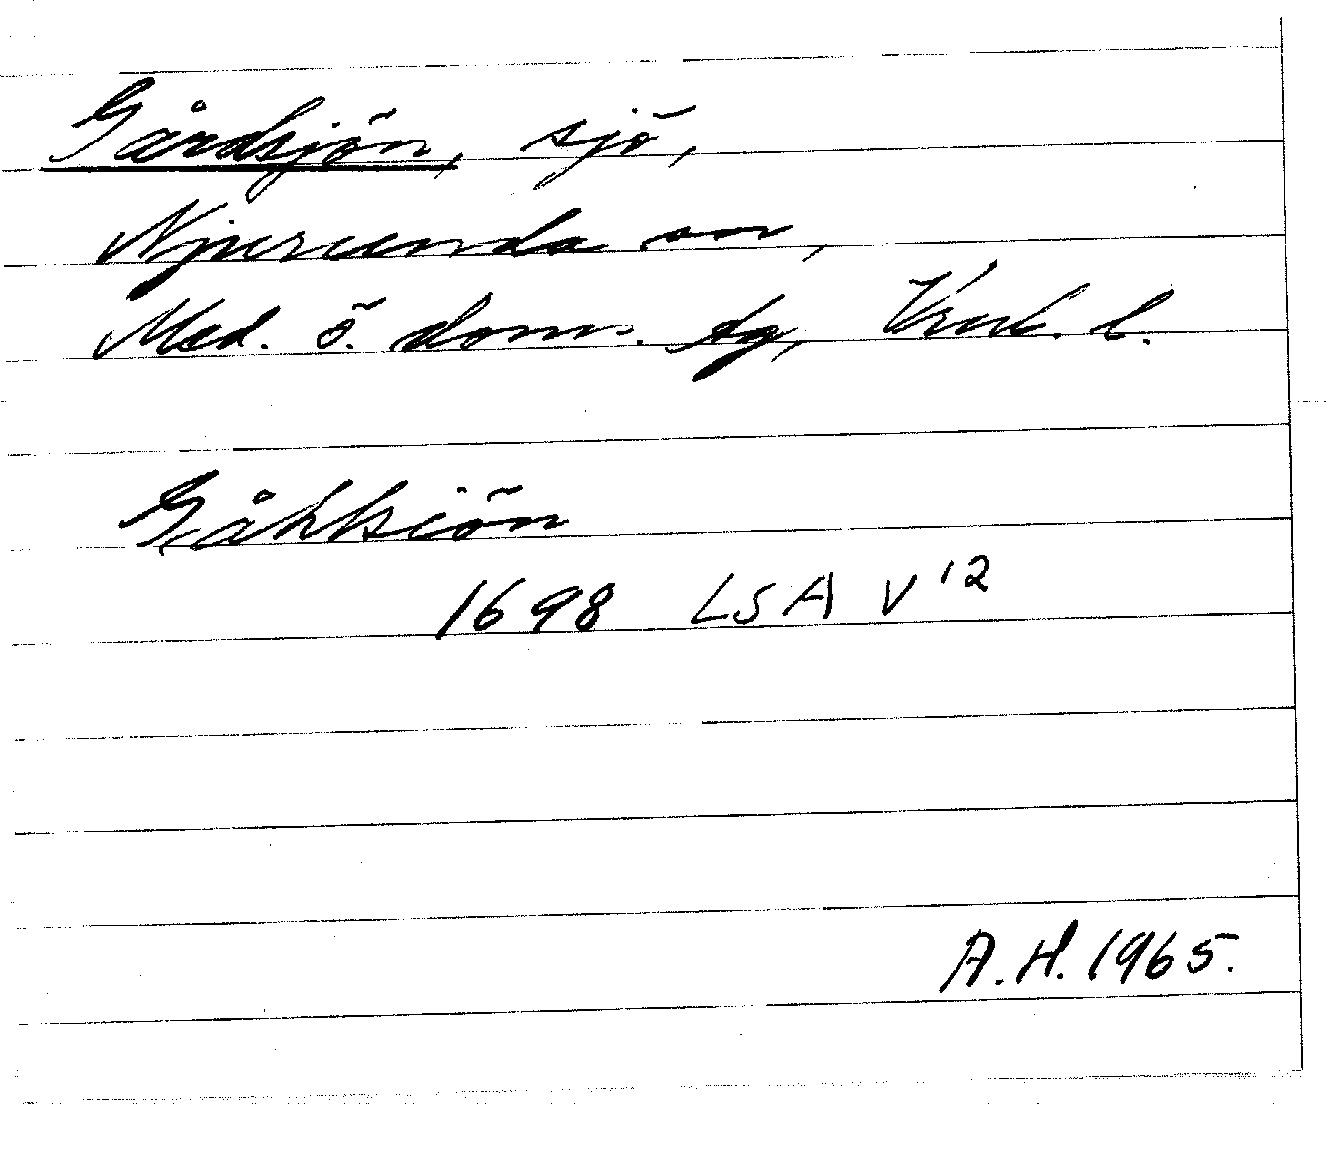 Gårdsjön, sjö,
Njurunda sn,
Med. ö. doms. tg, Vrnl. l.
Gåhlsiön
1698 LSA V 12
A.H. 1965.